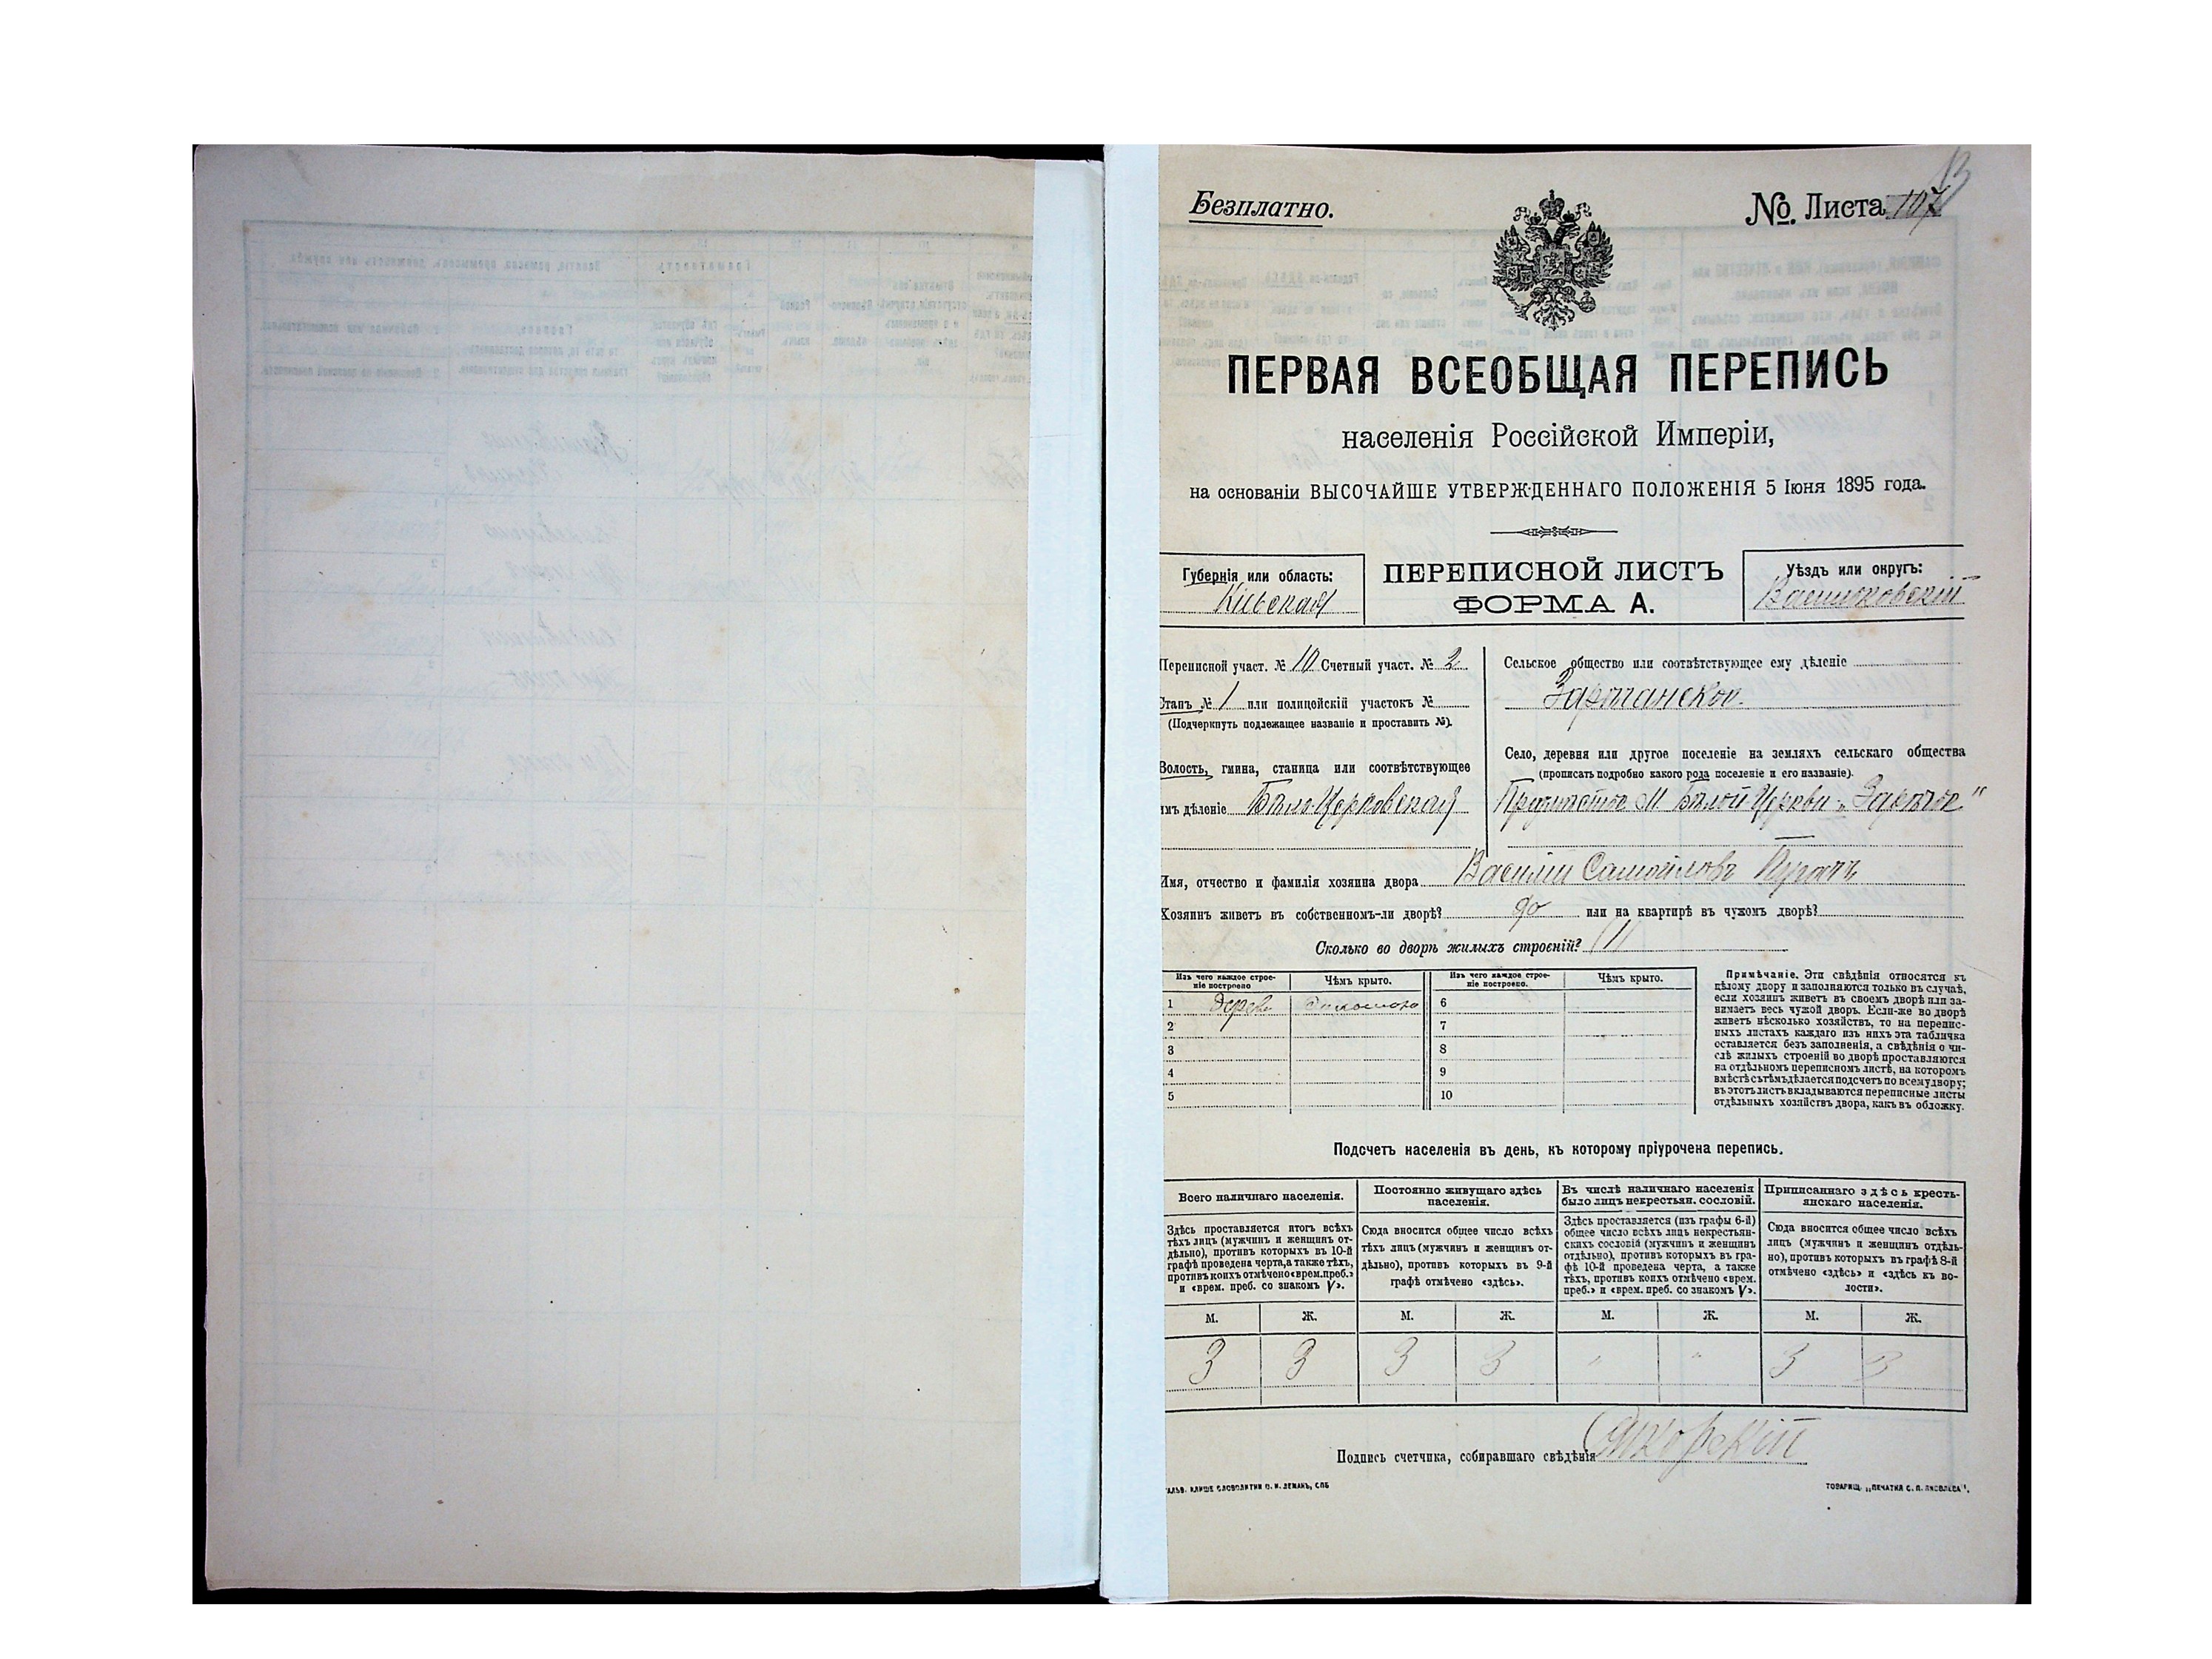 Безплатно.
№ Листа 107
13
ПЕРВАЯ ВСЕОБЩАЯ ПЕРЕПИСЬ
населенія Россійской Имперіи,
на основаніи ВЫСОЧАЙШЕ УТВЕРЖДЕННАГО ПОЛОЖЕНІЯ 5 Іюня 1895 года.
Губернія или область:
Кіевская
ПЕРЕПИСНОЙ ЛИСТЪ
ФОРМА А.
Уѣздъ или округъ:
Васильковскій
Переписной участ. № 10 Счетный участ. № 2
Станъ № 1 или полицейскій участокъ №
(Подчеркнуть подлежащее названіе и проставить №).
Волость, гмина, станица или соотвѣтствующее
имъ дѣленіе Бѣло-Церковская
Сельское общество или соотвѣтствующее ему дѣленіе
Село, деревня или другое поселеніе на земляхъ сельскаго общества
(прописать подробно какого рода поселеніе и его названіе).
Предмѣстье М. Бѣлой Церкви „Зарѣчье"
Имя, отчество и фамилія хозяина двора Василій Самойловъ
Хозяинъ живетъ въ собственномъ-ли дворѣ? да или на квартирѣ въ чужомъ дворѣ?
Сколько во дворѣ жилыхъ строеній? 1
Изъ чего каждое строеніе построено
Чѣмъ крыто.
Изъ чего каждое строеніе построено.
Чѣмъ крыто.
1 дерев. соломою
2
3
4
5
6
7
8
9
10
Примѣчаніе. Эти свѣдѣнія относятся къ
цѣлому двору и заполняются только въ случаѣ,
если хозяинъ живетъ въ своемъ дворѣ или за-
нимаетъ весь чужой дворъ. Если-же во дворѣ
живетъ нѣсколько хозяйствъ, то на перепис-
ныхъ листахъ каждаго изъ нихъ эта табличка
оставляется безъ заполненія, а свѣдѣнія о чи-
слѣ жилыхъ строеній во дворѣ проставляются
на отдѣльномъ переписномъ листѣ, на которомъ
вмѣстѣ съ тѣмъ дѣлается подсчетъ по всему двору;
въ этотъ листъ вкладываются переписные листы
отдѣльныхъ хозяйствъ двора, какъ въ обложку.
Подсчетъ населенія въ день, къ которому пріурочена перепись.
Всего наличнаго населенія.
Здѣсь проставляется итогъ всѣхъ
тѣхъ лицъ (мужчинъ и женщинъ от-
дѣльно), противъ которыхъ въ 10-й
графѣ проведена черта, а также тѣхъ,
противъ коихъ отмѣчено «врем. преб.»
и «врем. преб. со знакомъ V».
Постоянно живущаго здѣсь
населенія.
Сюда вносится общее число всѣхъ
тѣхъ лицъ (мужчинъ и женщинъ от-
дѣльно), противъ которыхъ въ 9-й
графѣ отмѣчено «здѣсь».
Въ числѣ наличнаго населенія
было лицъ некрестьян. сословій.
Здѣсь проставляется (изъ графы 6-й)
общее число всѣхъ лицъ некрестьян-
скихъ сословій (мужчинъ и женщинъ
отдѣльно), противъ которыхъ въ гра-
фѣ 10-й проведена черта, а также
тѣхъ, противъ коихъ отмѣчено «врем.
преб.» и «врем. преб. со знакомъ V».
Приписаннаго здѣсь кресть-
янскаго населенія.
Сюда вносится общее число всѣхъ
лицъ (мужчинъ и женщинъ отдѣль-
но), противъ которыхъ въ графѣ 8-й
отмѣчено «здѣсь» и «здѣсь къ во-
лости».
М. Ж. М. Ж. М. Ж. М. Ж.
3 3 3 3 " " 3 3
Подпись счетчика, собиравшаго свѣдѣнія
ГАЛЬВ. КЛИШЕ СЛОВОЛИТНИ О. И. ЛЕМАНЪ, СПБ
ТОВАРИЩ. „ПЕЧАТНЯ С. П. ЯКОВЛЕВА".